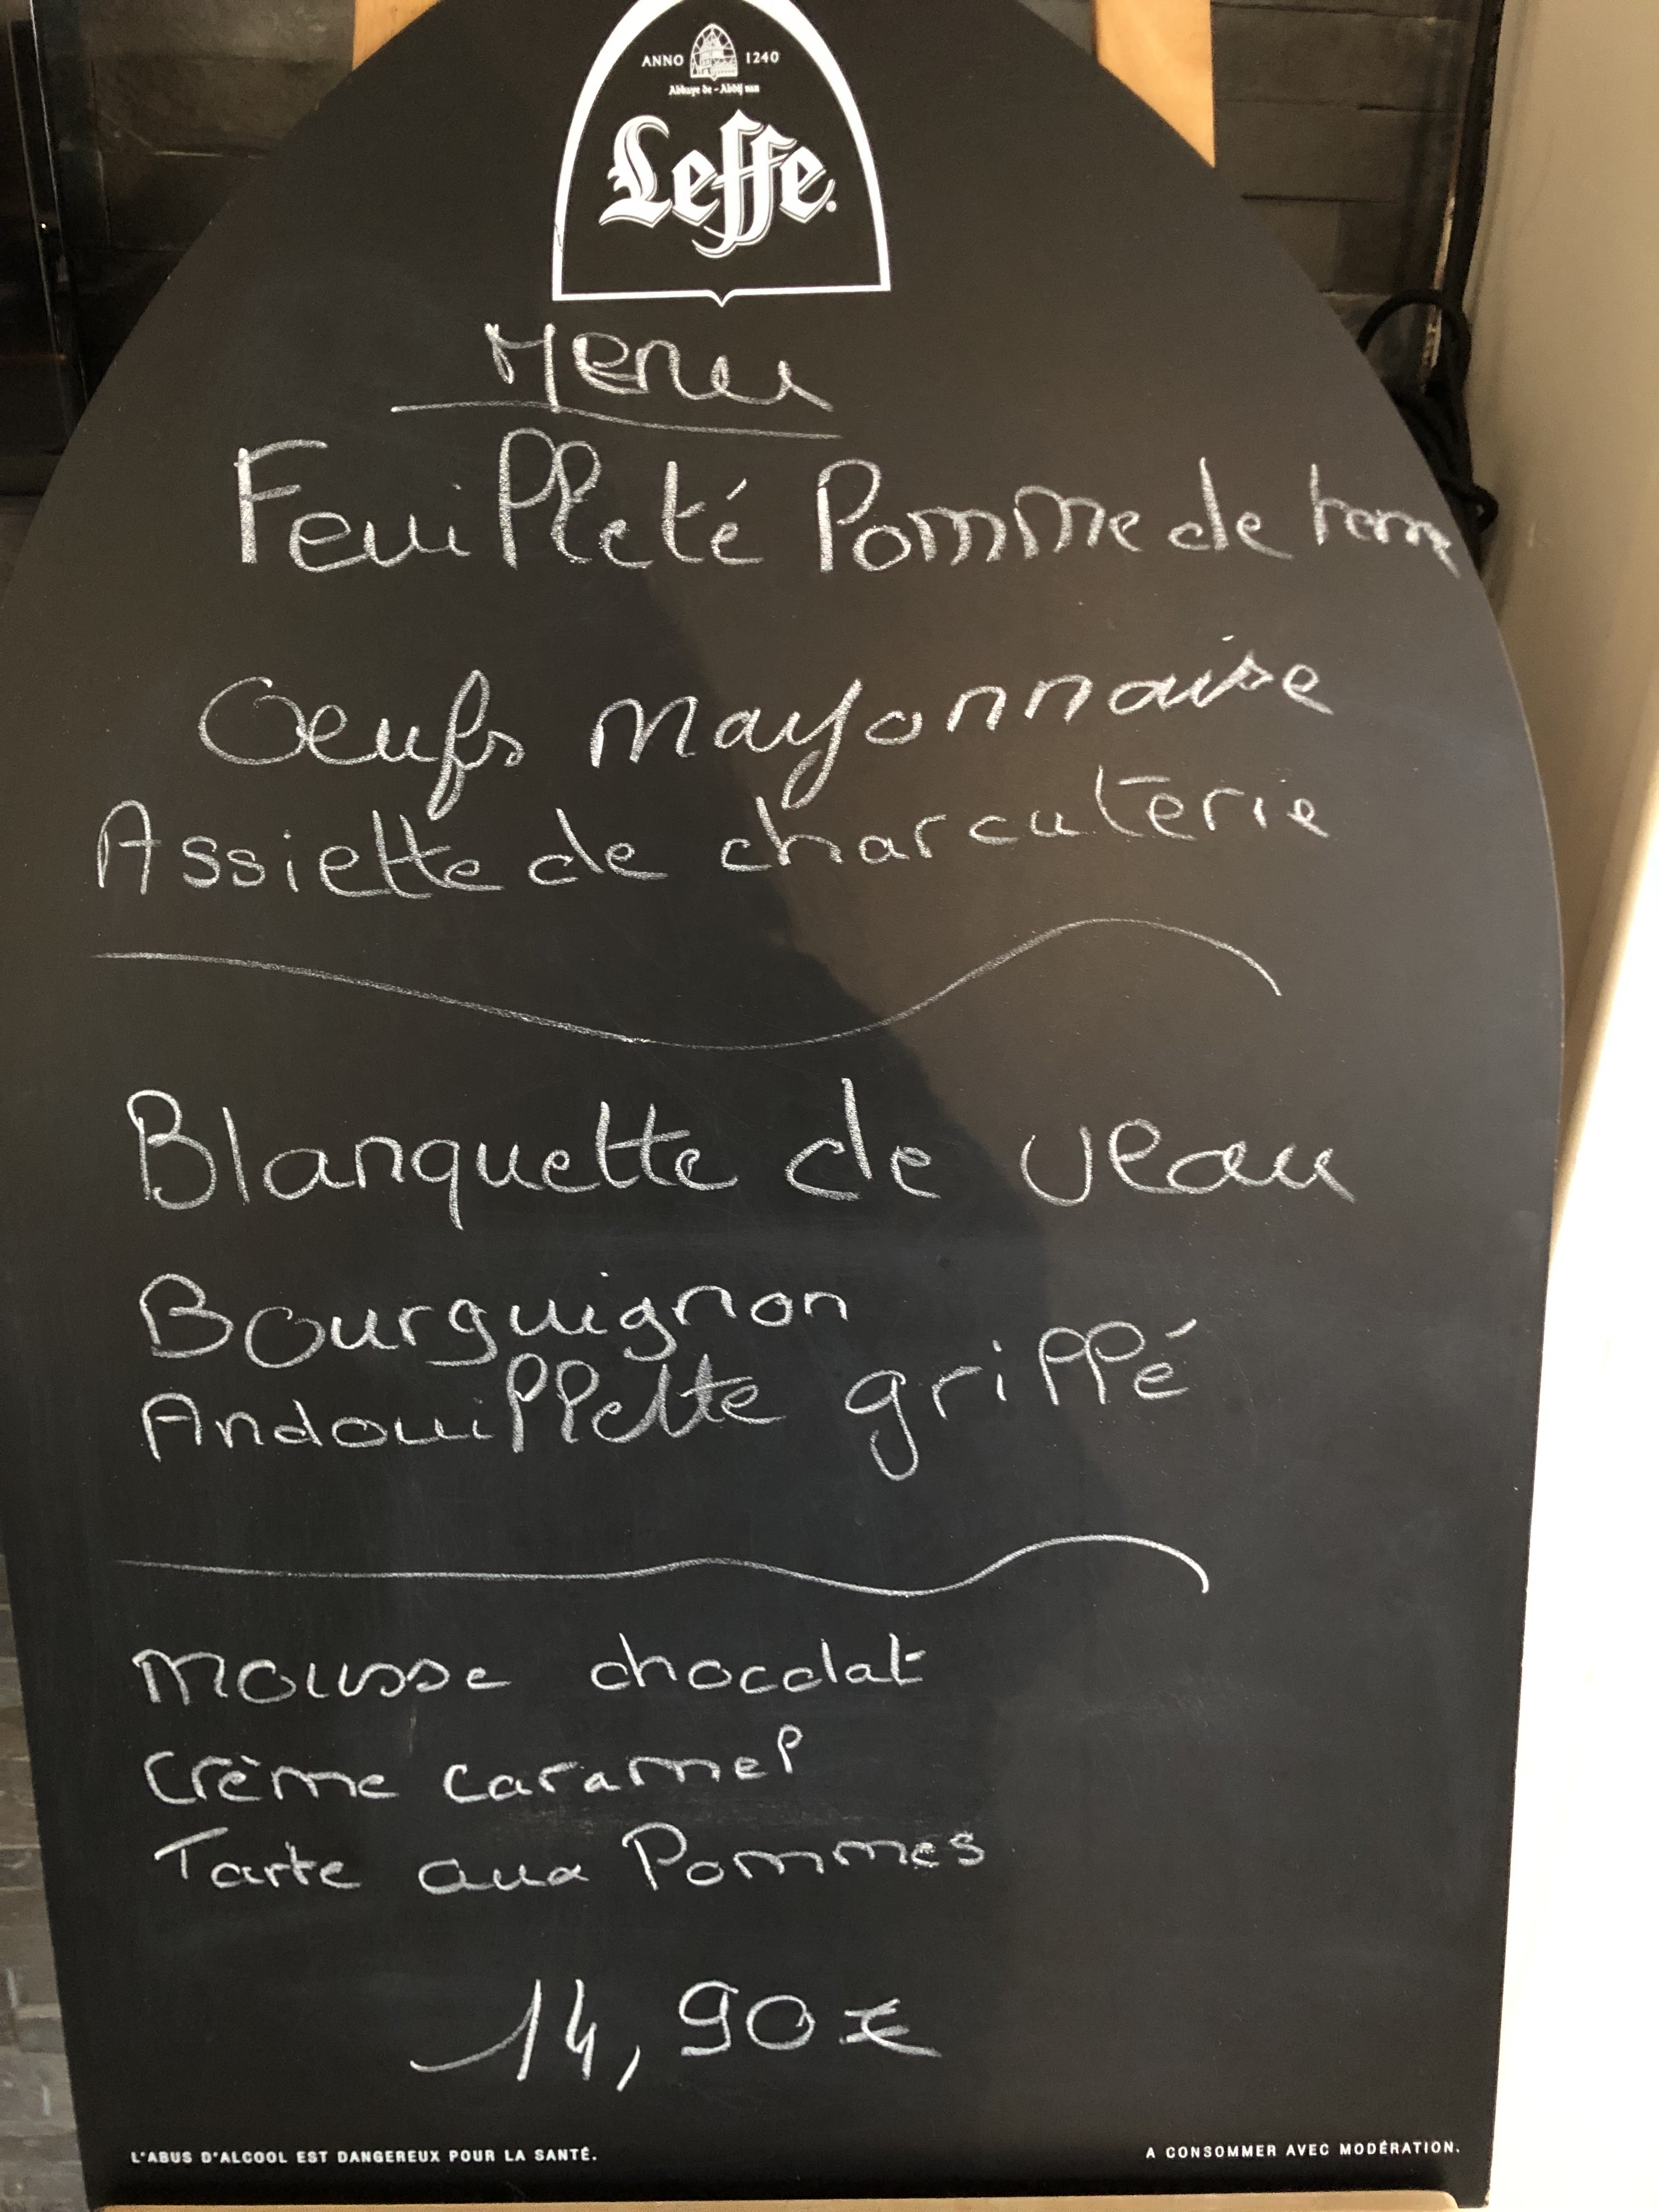 ANNO 1240
Abbaye de - Abdij van
Leffe.
Menu
Feuilleté Pomme de terre
Oeufs mayonnaise
Assiette de charcuterie
Blanquette de veau
Bourguignon
Andouillette grillé
Mousse chocolat
Crème caramel
Tarte aux Pommes
14,90€
L'ABUS D'ALCOOL EST DANGEREUX POUR LA SANTÉ. A CONSOMMER AVEC MODÉRATION.